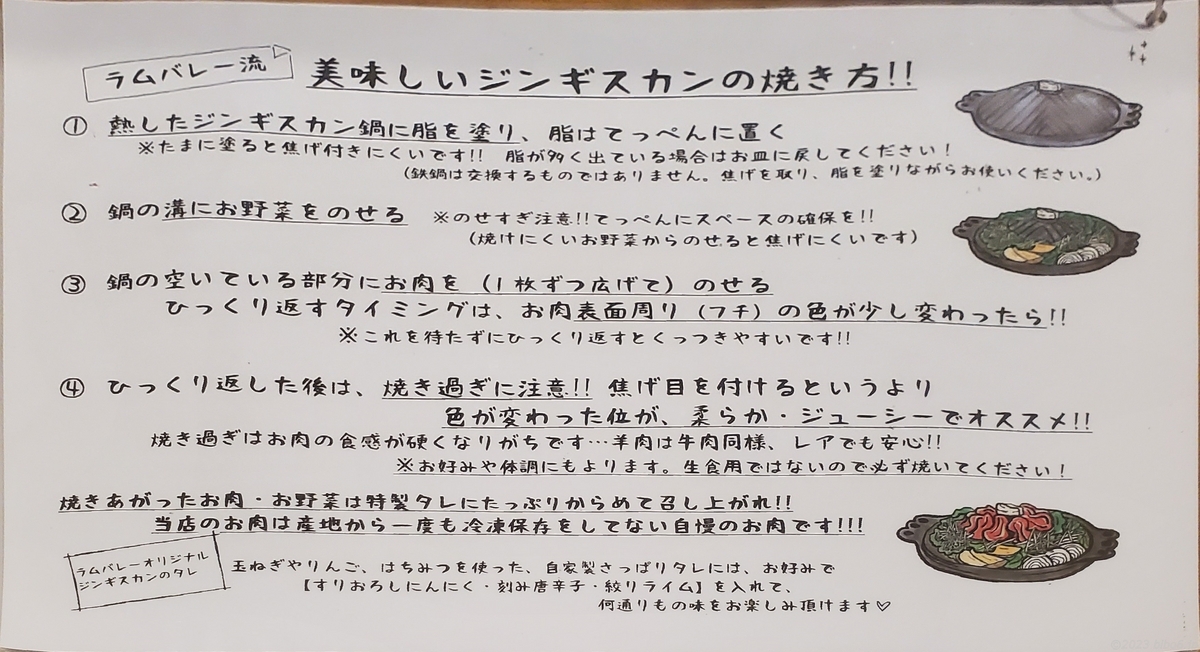 ラムバレー流
美味しいジンギスカンの焼き方!!
① 熱したジンギスカン鍋に脂を塗り、脂はてっぺんに置く
※たまに塗ると焦げ付きにくいです!! 脂が多く出ている場合はお皿に戻してください!
(鉄鍋は交換するものではありません。焦げを取り、脂を塗りながらお使いください。)
② 鍋の溝にお野菜をのせる ※のせすぎ注意!!てっぺんにスペースの確保を!!
(焼けにくいお野菜からのせると焦げにくいです)
③ 鍋の空いている部分にお肉を(1枚ずつ広げて)のせる
ひっくり返すタイミングは、お肉表面周り(フチ)の色が少し変わったら!!
※これを待たずにひっくり返すとくっつきやすいです!!
④ ひっくり返した後は、焼き過ぎに注意!! 焦げ目を付けるというより
色が変わった位が、柔らか・ジューシーでオススメ!!
焼き過ぎはお肉の食感が硬くなりがちです…羊肉は牛肉同様、レアでも安心!!
※お好みや体調にもよります。生食用ではないので必ず焼いてください!
焼きあがったお肉・お野菜は特製タレにたっぷりからめて召し上がれ!!
当店のお肉は産地から一度も冷凍保存をしてない自慢のお肉です!!!
ラムバレーオリジナル
ジンギスカンのタレ
玉ねぎやりんご、はちみつを使った、自家製さっぱりタレには、お好みで
【すりおろしにんにく・刻み唐辛子・絞りライム】を入れて、
何通りもの味をお楽しみ頂けます♡